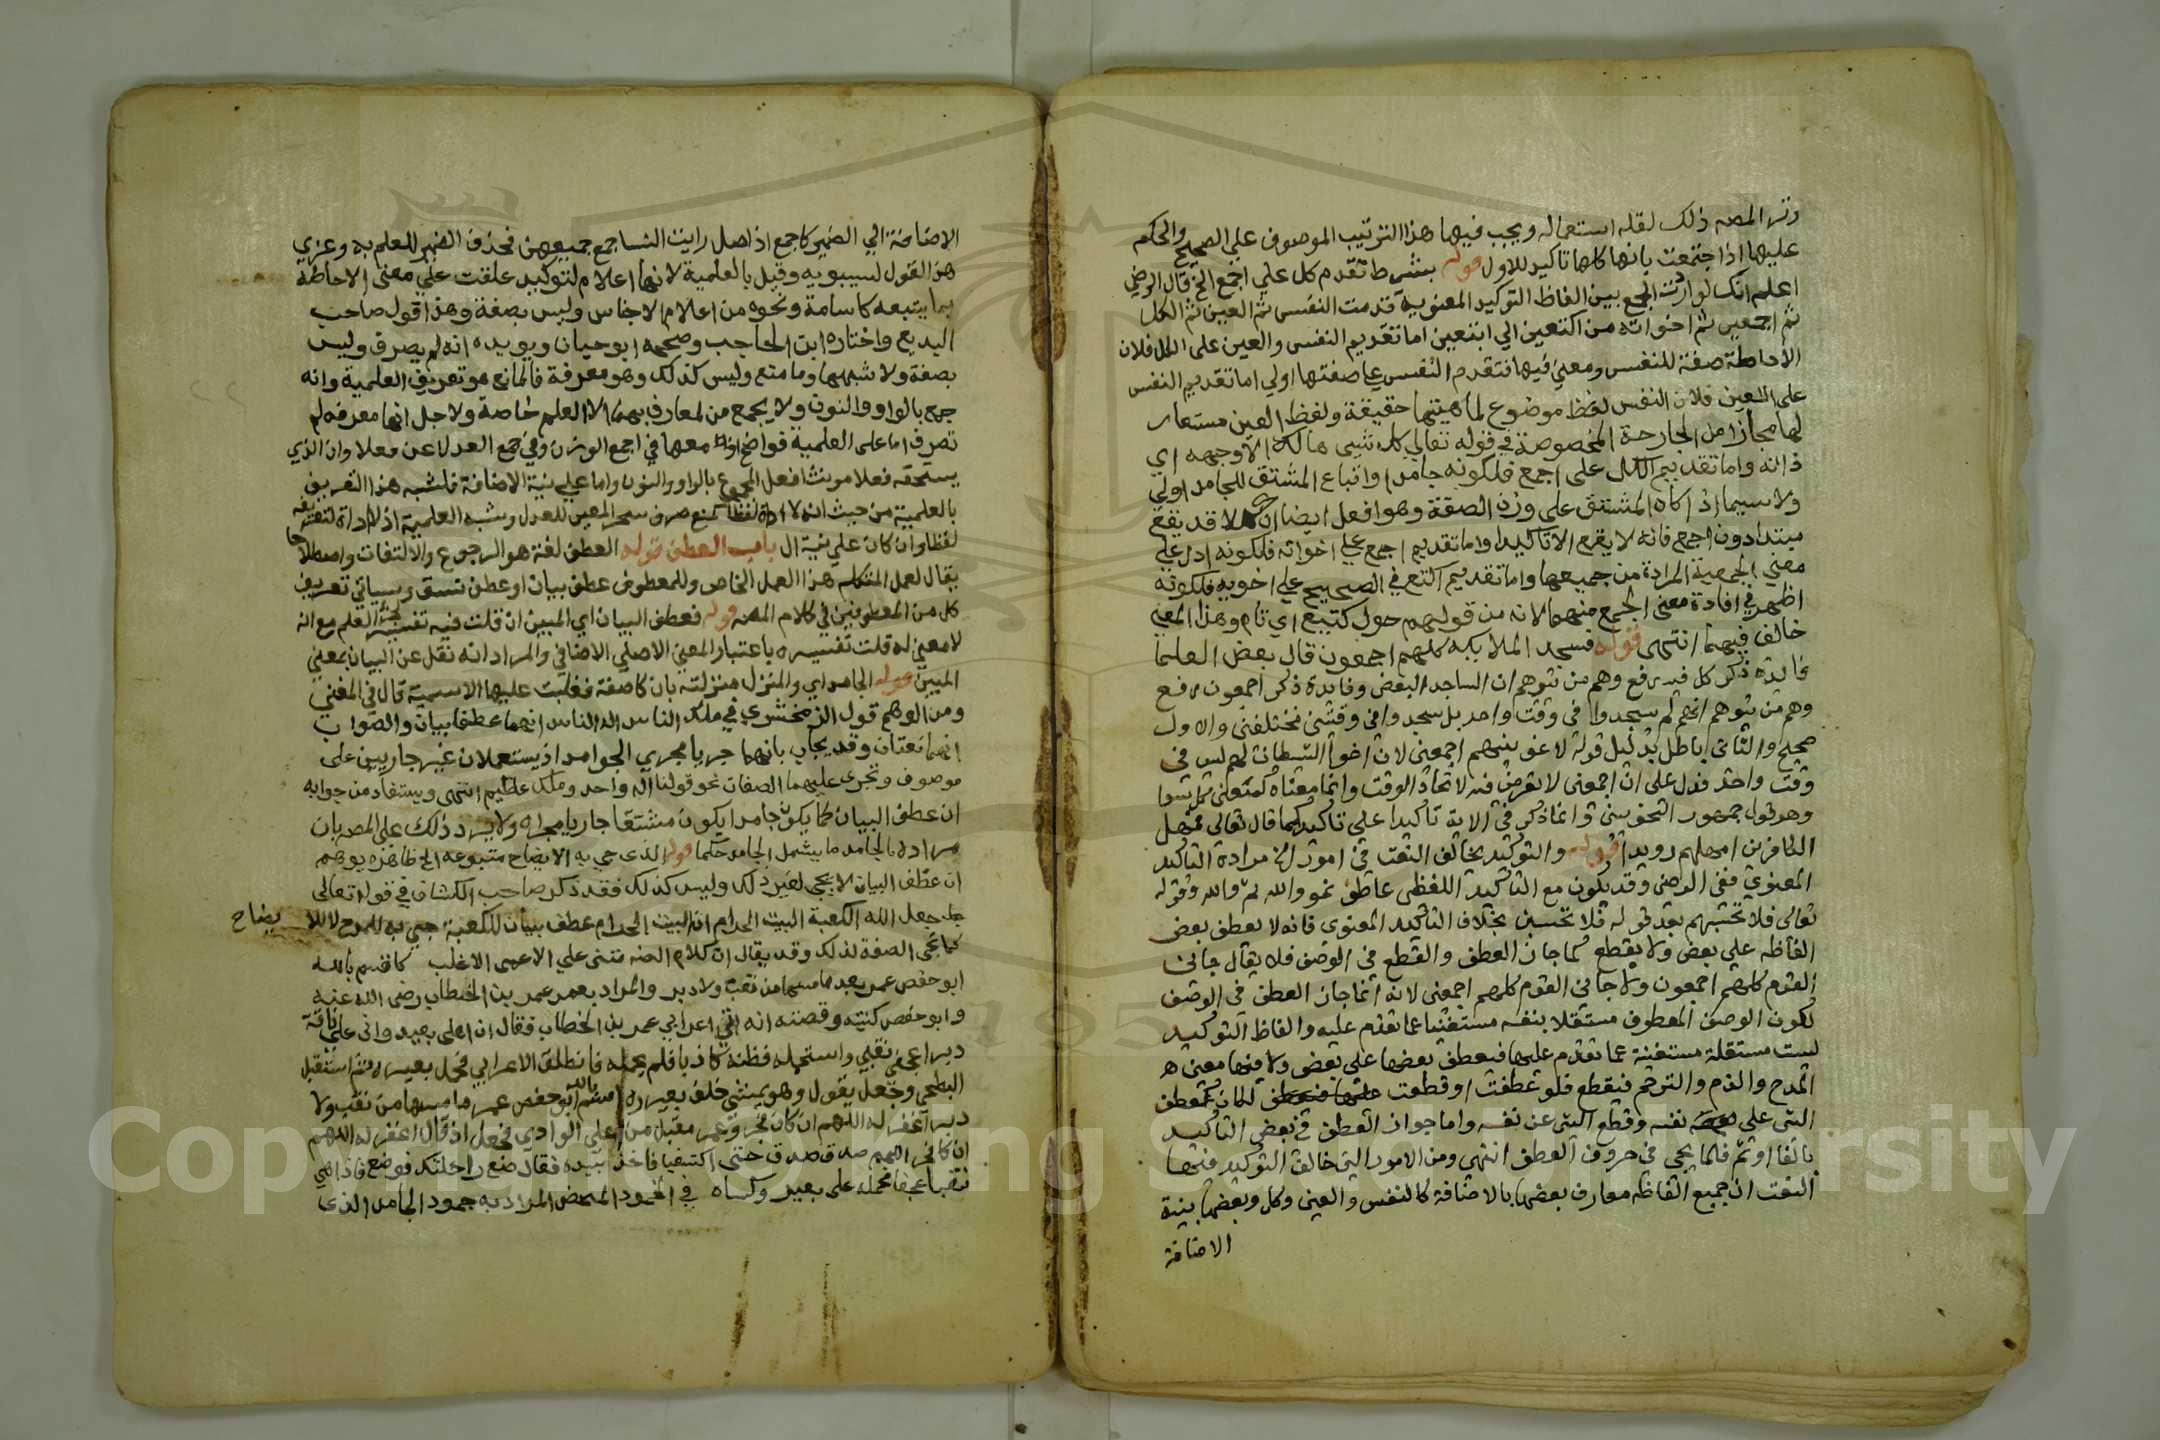 وترك المصنف ذلك لقلة استعماله ويجب فيها هذا الترتيب الموصوف علي الصحيح والحكم
عليها اذا اجتمعت بانها كلها تاكيد للاول قوله بشرط تقدم كل علي اجمع الخ قال الرضي
اعلم انك لو اردت الجمع بين الفاظ التوكيد المعنوية قدمت النفس ثم العين ثم الكل
ثم اجمعين ثم اخواته من اكتعين الي ابتعين اما تقديم النفس والعين على الكل فلان
الاحاطة صفة للنفس ومعني فيها فتقدم النفس علي صفتها اولي اما تقديم النفس
على العين فلان النفس لفظ موضوع لماهيتها حقيقة ولفظ العين مستعار
لها مجازا من الجارحة المخصوصة في قوله تعالي كل شيى هالك الا وجهه اي
ذاته واما تقديم الكل على اجمع فلكونه جامدا واتباع المشتق للجامد اولي
ولا سيما اذا كان المشتق على وزن الصفة وهو افعل ايضا ان كلا قد يقع
مبتدا دون اجمع فانه لا يقع الا تاكيدا واما تقديم اجمع علي اخواته فلكونه ادل علي
معني الجمعية المرادة من جميعها واما تقديم اكتع في الصحيح علي اخويه فلكونه
اظهر في افادة معني الجمع منهما لانه من قولهم حول كتيع اي تام وهذا المعني
خالف فيهما انتهى قوله فسجد الملايكه كلهم اجمعون قال بعض العلما
فايدة ذكر كل فيه رفع وهم من توهم ان الساجد البعض وفايدة ذكر اجمعون رفع
وهم من توهم انهم لم يسجدوا في وقت واحد بل سجدوا في وقتين مختلفين والاول
صحيح والثاني باطل بدليل قوله لاغوينهم اجمعين لان اغوا الشيطان لهم ليس في
وقت واحد فدل على ان اجمعين لا تعرض فيه لاتحاد الوقت وانما معناه كمعني كل سوا
وهو قول جمهور النحويين وانما ذكر في الاية تاكيدا على تاكيد كما قال تعالى فمهل
الكافرين امهلهم رويدا قوله والتوكيد يخالف النعت في امور الخ مراده التاكيد
المعنوي ففي الرضي وقد يكون مع التاكيد اللفظي عاطف نحو والله ثم والله وقوله
تعالى فلا تحسبنهم بعد قوله فلا تحسبن بخلاف التاكيد المعنوى فانه لا يعطف بعض
الفاظه علي بعض ولا يقطع كما جاز العطف والقطع في الوصف فلا يقال جاني
القوم كلهم اجمعون ولا جاني القوم كلهم اجمعين لانه انما جاز العطف في الوصف
لكون الوصف المعطوف مستقلا بنفسه مستغنيا عما تقدم عليه والفاظ التوكيد
ليست مستقلة مستغنية عما تقدم عليها فيعطف بعضها على بعض ولا فيها معنى
المدح والذم والترحم فيقطع فلو عطفت او قطعت لكان كعطف
الشي على نفسه وقطع الشي عن نفسه واما جواز العطف في بعض التاكيد
بالفا او ثم فلما يجي في حروف العطف انتهى ومن الامور التي خالف التوكيد فيها
النعت ان جميع الفاظه معارف بعضها بالاضافة كالنفس والعين وكل وبعضها بنية
الاضافة
الاضافة الي الضمير كاجمع اذ اصل رايت النسا جمع جميعهن فحذف الضمير للعلم به وعزي
هذا القول لسيبويه وقيل بالعلمية لانها اعلام لتوكيد علقت علي معنى الاحاطة
بما يتبعه كاسامة ونحوه من اعلام الاجناس وليس بصفة وهذا قول صاحب
البديع واختاره ابن الحاجب وصححه ابو حيان ويويده انه لم يصرف وليس
بصفة ولا شبهها وما منع وليس كذلك وهو معرفة فالمانع هو تعريف العلمية وانه
جمع بالواو والنون ولا يجمع من المعارف بهما الا العلم خاصة ولاجل انها معرفه لم
تصرف اما على العلمية فواضح معها في اجمع الوزن وفي جمع العدل عن فعلا وان الذي
يستحقه فعلا مونث افعل المجموع بالواو والنون واما علي نية الاضافة فلشبه هذا التعريف
بالعلمية من حيث انه لا اداة لفظا كمنع صرف سحر المعين للعدل وشبه العلمية اذ لا اداة لتعريفه
لفظا وان كان علي نية ال باب العطف قوله العطف لغة هو الرجوع والالتفات واصطلاحا
يقال لعمل المتكلم هذا العمل الخاص وللمعطوف عطف بيان او عطف نسق وسياتي تعريف
كل من المعطوفين في كلام المصنف قوله فعطف البيان اي المبين ان قلت فيه تفسير لجزء العلم مع انه
لا معني له قلت تفسيره باعتبار المعني الاصلي الاضافي والمراد انه نقل عن البيان بمعني
المبين قوله الجامد اي والمنزل منزلته بان كان صفة فغلبت عليها الاسمية قال في المغني
ومن الوهم قول الزمخشري في ملك الناس اله الناس انهما عطفا بيان والصواب
انهما نعتان وقد يجاب بانهما جريا مجري الجوامد اذ يستعملان غير جاريين على
موصوف وتجرى عليهما الصفات نحو قولنا اله واحد وملك عظيم انتهى ويستفاد من جوابه
ان عطف البيان كما يكون جامدا يكون مشتقا جاريا مجراه ولا يرد ذلك على المصنف بان
مراده بالجامد ما يشمل الجامد حكما قوله الذى جي به الايضاح متبوعه الخ ظاهره يوهم
ان عطف البيان لا يجي لغير ذلك وليس كذلك فقد ذكر صاحب الكشاف في قوله تعالى
جعل الله الكعبة البيت الحرام ان البيت الحرام عطف بيان للكعبة جيي به للمدح لا للايضاح
كما تجى الصفة لذلك وقد يقال ان كلام المصنف مبني علي الاعم الاغلب كاقسم بالله
ابو حفص عمر بعد ما مسها من نقب ولا دبر والمراد بعمر عمر بن الخطاب رضى الله عنه
وابو حفص كنيته وقصته انه اتي اعرابي عمر بن الخطاب فقال ان اهلي بعيد واني على ناقة
دبرا عجفي نقبي واستحمله فظنه كاذبا فلم يحمله فانطلق الاعرابي فحمل بعيره ثم استقبل
البطحي وجعل يقول وهو يمشي خلف بعيره اقسم بالله ابو حفص عمر ما مسها من نقب ولا
دبر اغفر له اللهم ان كان فجر وعمر مقبل من اعلي الوادي فجعل اذا قال اغفر له اللهم
ان كان فجر اللهم صدق صدق حتى التقيا فاخذ بيده فقال ضع راحلتك فوضع فاذا هي
نقبا عجفا فحمله على بعير وكساه في الجمود المحض المراد به جمود الجامد الذى